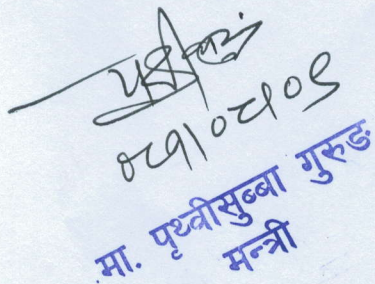 ०८१।०८।०९
मा. पृथ्वीसुब्बा गुरुङ
मन्त्री